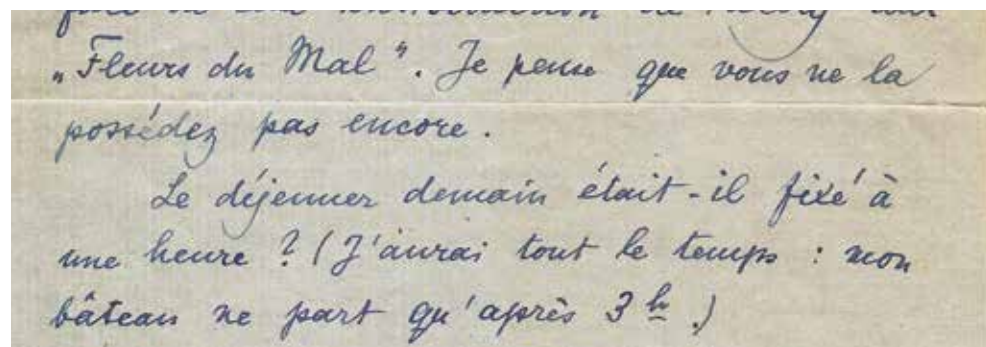 „Fleurs du Mal". Je pense que vous ne la
possédez pas encore.
Le déjeuner demain était-il fixé à
une heure ? (J'aurai tout le temps : mon
bâteau ne part qu'après 3 h.)